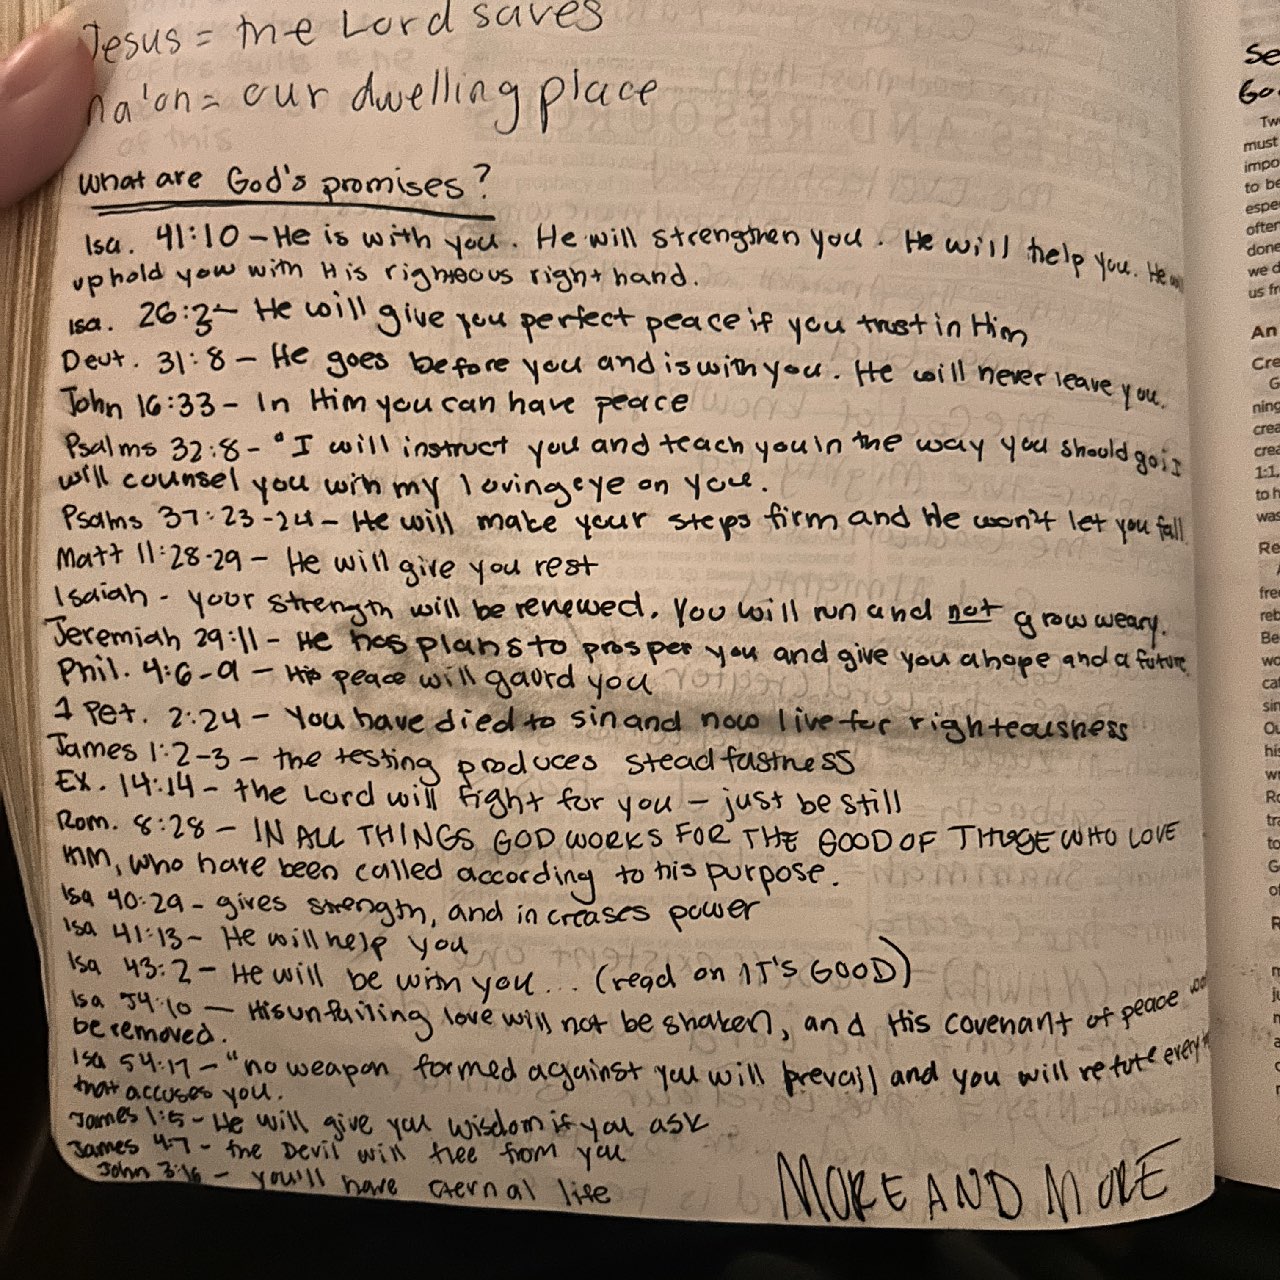 Jesus = the Lord saves
na'on = our dwelling place
What are God's promises?
Isa. 41:10 - He is with you. He will strengthen you. He will help you. He
uphold you with His righteous right hand.
Isa. 26:3 - He will give you perfect peace if you trust in Him
Deut. 31:8 - He goes before you and is with you. He will never leave you.
John 16:33 - In Him you can have peace
Psalms 32:8 - "I will instruct you and teach you in the way you should go; I
will counsel you with my loving eye on you.
Psalms 37:23-24 - He will make your steps firm and He won't let you fall
Matt 11:28-29 - He will give you rest
Isaiah - your strength will be renewed. You will run and not grow weary.
Jeremiah 29:11 - He has plans to prosper you and give you a hope and a future
Phil. 4:6-9 - His peace will gaurd you
1 Pet. 2:24 - You have died to sin and now live for righteousness
James 1:2-3 - the testing produces steadfastness
Ex. 14:14 - the Lord will fight for you - just be still
Rom. 8:28 - IN ALL THINGS GOD WORKS FOR THE GOOD OF THOSE WHO LOVE
HIM, who have been called according to his purpose.
Isa 40:29 - gives strength, and increases power
Isa 41:13 - He will help you
Isa 43:2 - He will be with you... (read on IT'S GOOD)
Isa 54:10 - His unfailing love will not be shaken, and His covenant of peace
be removed.
Isa 54:17 - "no weapon formed against you will prevail and you will refute every
that accuses you.
James 1:5 - He will give you wisdom if you ask
James 4:7 - the Devil will flee from you
John 3:16 - you'll have eternal life
MORE AND MORE
An
must
to be
done
we d
us fr